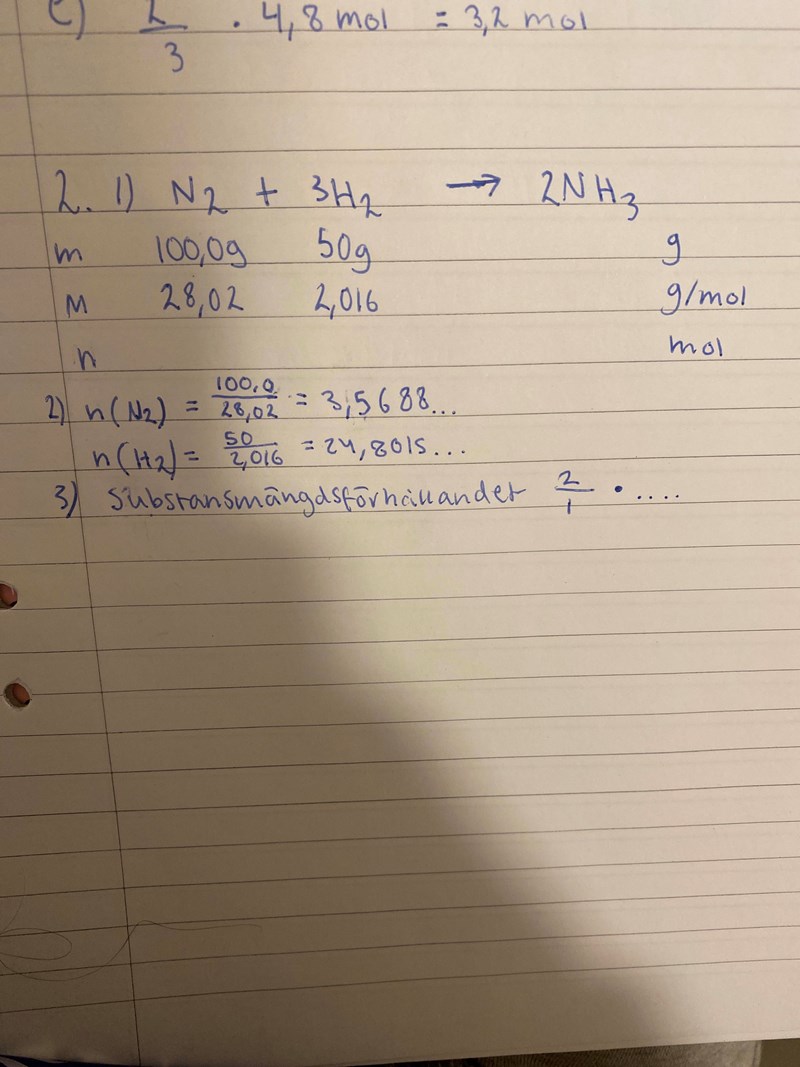 c) 2/3 · 4,8 mol = 3,2 mol
2. 1) N2 + 3H2 → 2NH3
m 100,0g 50g g
M 28,02 2,016 g/mol
n mol
2) n(N2) = 100,0/28,02 = 3,5688...
n(H2) = 50/2,016 = 24,8015...
3) Substansmängdsförhållandet 2/1 · ....